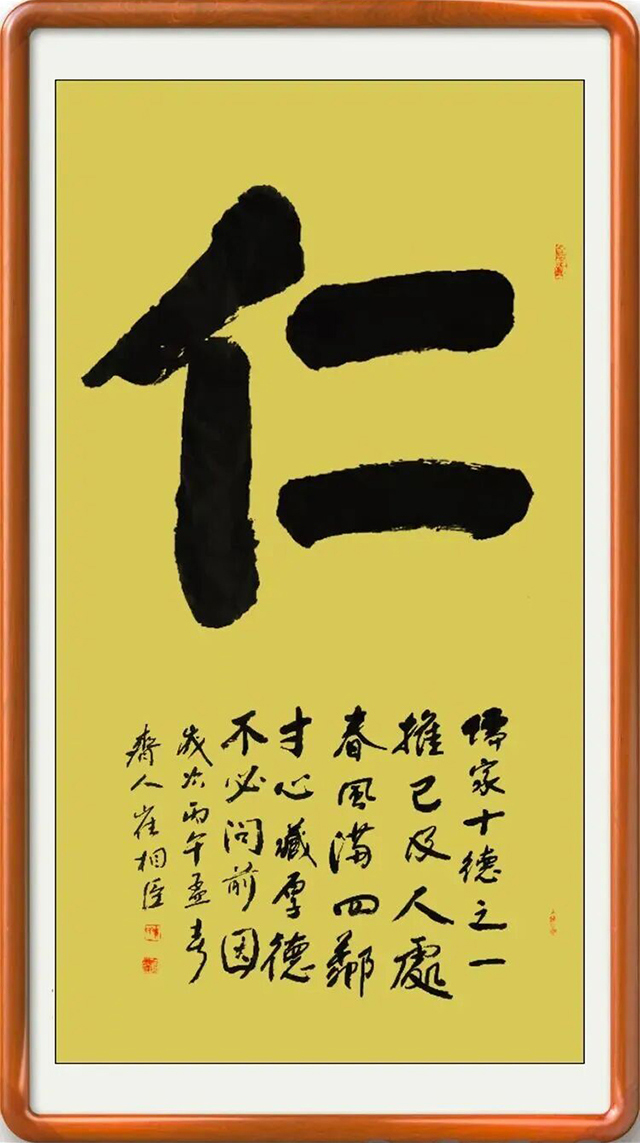 仁
儒家十德之一
推己及人處
春風滿四鄰
寸心藏厚德
不必问前因
歲次丙午孟春
齊人崔相